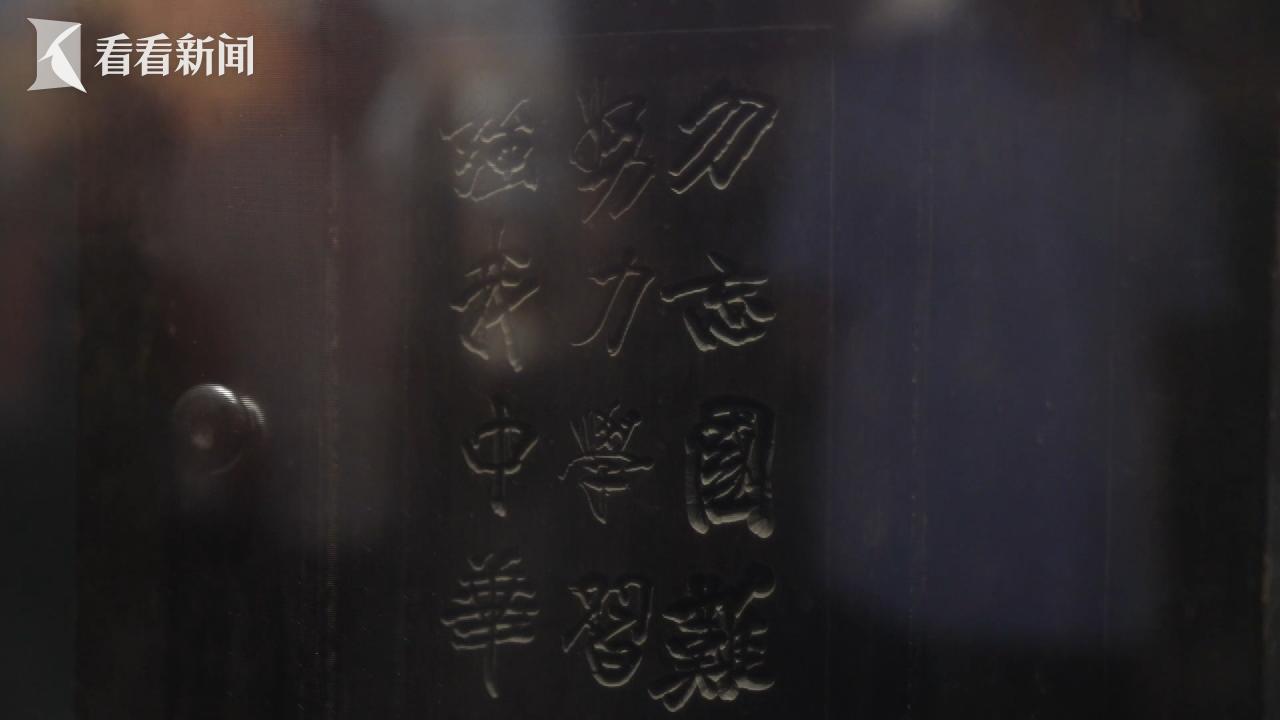 看看新闻
勿忘國難
努力學習
強我中華